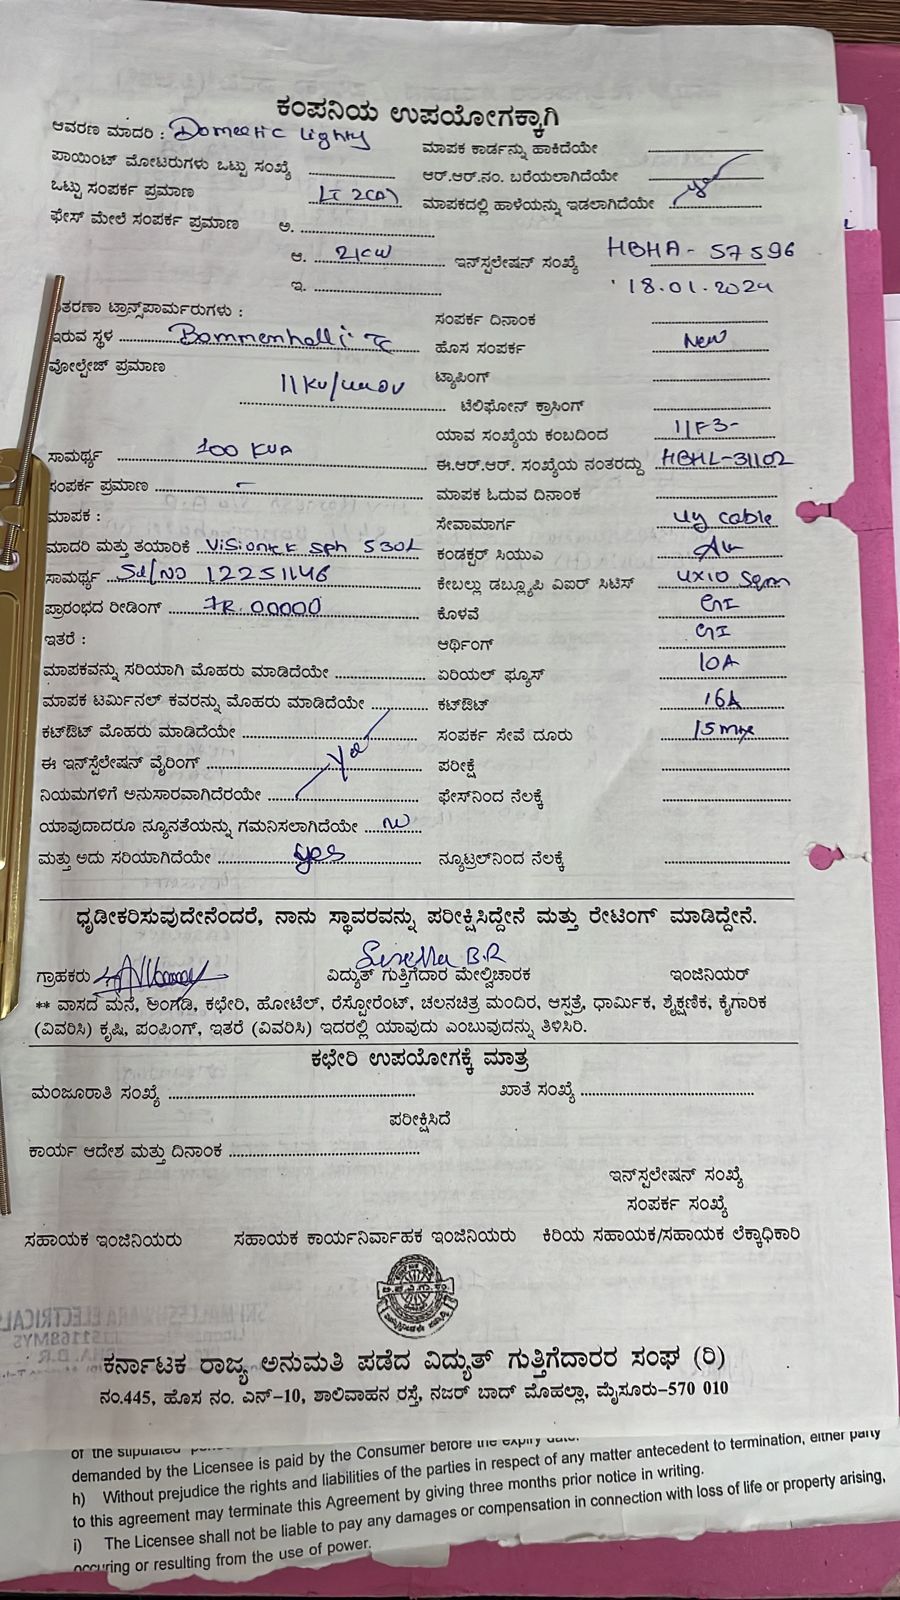 ಕಂಪನಿಯ ಉಪಯೋಗಕ್ಕಾಗಿ
ಆವರಣ ಮಾದರಿ : Domestic Lighty
ಮಾಪಕ ಕಾರ್ಡನ್ನು ಹಾಕಿದೆಯೇ
ಪಾಯಿಂಟ್ ಮೋಟರುಗಳು ಒಟ್ಟು ಸಂಖ್ಯೆ
ಆರ್.ಆರ್.ನಂ. ಬರೆಯಲಾಗಿದೆಯೇ
ಒಟ್ಟು ಸಂಪರ್ಕ ಪ್ರಮಾಣ LT 2(a)
ಮಾಪಕದಲ್ಲಿ ಹಾಳೆಯನ್ನು ಇಡಲಾಗಿದೆಯೇ yes
ಫೇಸ್ ಮೇಲೆ ಸಂಪರ್ಕ ಪ್ರಮಾಣ ಅ.
ಆ. 2KW ಇನ್‌ಸ್ಟಲೇಷನ್ ಸಂಖ್ಯೆ HBHA - 57596
ಇ. 18.01.2024
ತರಣಾ ಟ್ರಾನ್ಸ್‌ಪಾರ್ಮರುಗಳು :
ಸಂಪರ್ಕ ದಿನಾಂಕ
ಇರುವ ಸ್ಥಳ Bommenhalli TC
ಹೊಸ ಸಂಪರ್ಕ New
ವೋಲ್ಟೇಜ್ ಪ್ರಮಾಣ 11KV/440V
ಟ್ಯಾಪಿಂಗ್
ಟೆಲಿಫೋನ್ ಕ್ರಾಸಿಂಗ್
ಯಾವ ಸಂಖ್ಯೆಯ ಕಂಬದಿಂದ 11F3-
ಸಾಮರ್ಥ್ಯ 100 KVA
ಈ.ಆರ್.ಆರ್. ಸಂಖ್ಯೆಯ ನಂತರದ್ದು HBHL-31102
ಸಂಪರ್ಕ ಪ್ರಮಾಣ -
ಮಾಪಕ ಓದುವ ದಿನಾಂಕ
ಮಾಪಕ :
ಸೇವಾಮಾರ್ಗ ug cable
ಮಾದರಿ ಮತ್ತು ತಯಾರಿಕೆ Visiontek sph 530L
ಕಂಡಕ್ಟರ್ ಸಿಯುಎ Alu
ಸಾಮರ್ಥ್ಯ Sd/NO 12251146
ಕೇಬಲ್ಲು ಡಬ್ಲ್ಯೂಪಿ ವಿಐರ್ ಸಿಟಿಸ್ 4X10 Sqm
ಪ್ರಾರಂಭದ ರೀಡಿಂಗ್ IR. 00000
ಕೊಳವೆ GI
ಇತರೆ :
ಆರ್ಥಿಂಗ್ GI
ಮಾಪಕವನ್ನು ಸರಿಯಾಗಿ ಮೊಹರು ಮಾಡಿದೆಯೇ
ಏರಿಯಲ್ ಫ್ಯೂಸ್ 10A
ಮಾಪಕ ಟರ್ಮಿನಲ್ ಕವರನ್ನು ಮೊಹರು ಮಾಡಿದೆಯೇ
ಕಟ್‌ಔಟ್ 16A
ಕಟ್‌ಔಟ್ ಮೊಹರು ಮಾಡಿದೆಯೇ
ಸಂಪರ್ಕ ಸೇವೆ ದೂರು
ಈ ಇನ್‌ಸ್ಟೆಲೇಷನ್ ವೈರಿಂಗ್ yes
ಪರೀಕ್ಷೆ
ನಿಯಮಗಳಿಗೆ ಅನುಸಾರವಾಗಿದೆರಯೇ
ಫೇಸ್‌ನಿಂದ ನೆಲಕ್ಕೆ
ಯಾವುದಾದರೂ ನ್ಯೂನತೆಯನ್ನು ಗಮನಿಸಲಾಗಿದೆಯೇ
ಮತ್ತು ಅದು ಸರಿಯಾಗಿದೆಯೇ yes
ನ್ಯೂಟ್ರಲ್‌ನಿಂದ ನೆಲಕ್ಕೆ
ಧೃಡೀಕರಿಸುವುದೇನೆಂದರೆ, ನಾನು ಸ್ಥಾವರವನ್ನು ಪರೀಕ್ಷಿಸಿದ್ದೇನೆ ಮತ್ತು ರೇಟಿಂಗ್ ಮಾಡಿದ್ದೇನೆ.
B.R
ಗ್ರಾಹಕರು ವಿದ್ಯುತ್ ಗುತ್ತಿಗೆದಾರ ಮೇಲ್ವಿಚಾರಕ ಇಂಜಿನಿಯರ್
** ವಾಸದ ಮನೆ, ಅಂಗಡಿ, ಕಛೇರಿ, ಹೋಟೆಲ್, ರೆಸ್ಟೋರೆಂಟ್, ಚಲನಚಿತ್ರ ಮಂದಿರ, ಆಸ್ಪತ್ರೆ, ಧಾರ್ಮಿಕ, ಶೈಕ್ಷಣಿಕ, ಕೈಗಾರಿಕ
(ವಿವರಿಸಿ) ಕೃಷಿ, ಪಂಪಿಂಗ್, ಇತರೆ (ವಿವರಿಸಿ) ಇದರಲ್ಲಿ ಯಾವುದು ಎಂಬುವುದನ್ನು ತಿಳಿಸಿರಿ.
ಕಛೇರಿ ಉಪಯೋಗಕ್ಕೆ ಮಾತ್ರ
ಮಂಜೂರಾತಿ ಸಂಖ್ಯೆ ಖಾತೆ ಸಂಖ್ಯೆ
ಪರೀಕ್ಷಿಸಿದೆ
ಕಾರ್ಯ ಆದೇಶ ಮತ್ತು ದಿನಾಂಕ
ಇನ್‌ಸ್ಟಲೇಷನ್ ಸಂಖ್ಯೆ
ಸಂಪರ್ಕ ಸಂಖ್ಯೆ
ಸಹಾಯಕ ಇಂಜಿನಿಯರು ಸಹಾಯಕ ಕಾರ್ಯನಿರ್ವಾಹಕ ಇಂಜಿನಿಯರು ಕಿರಿಯ ಸಹಾಯಕ/ಸಹಾಯಕ ಲೆಕ್ಕಾಧಿಕಾರಿ
ಕರ್ನಾಟಕ ರಾಜ್ಯ ಅನುಮತಿ ಪಡೆದ ವಿದ್ಯುತ್ ಗುತ್ತಿಗೆದಾರರ ಸಂಘ (ರಿ)
ನಂ.445, ಹೊಸ ನಂ. ಎನ್-10, ಶಾಲಿವಾಹನ ರಸ್ತೆ, ನಜರ್ ಬಾದ್ ಮೊಹಲ್ಲಾ, ಮೈಸೂರು-570 010
of the stipulated
demanded by the Licensee is paid by the Consumer before the expiry date.
h) Without prejudice the rights and liabilities of the parties in respect of any matter antecedent to termination, either party
to this agreement may terminate this Agreement by giving three months prior notice in writing.
i) The Licensee shall not be liable to pay any damages or compensation in connection with loss of life or property arising,
occuring or resulting from the use of power.